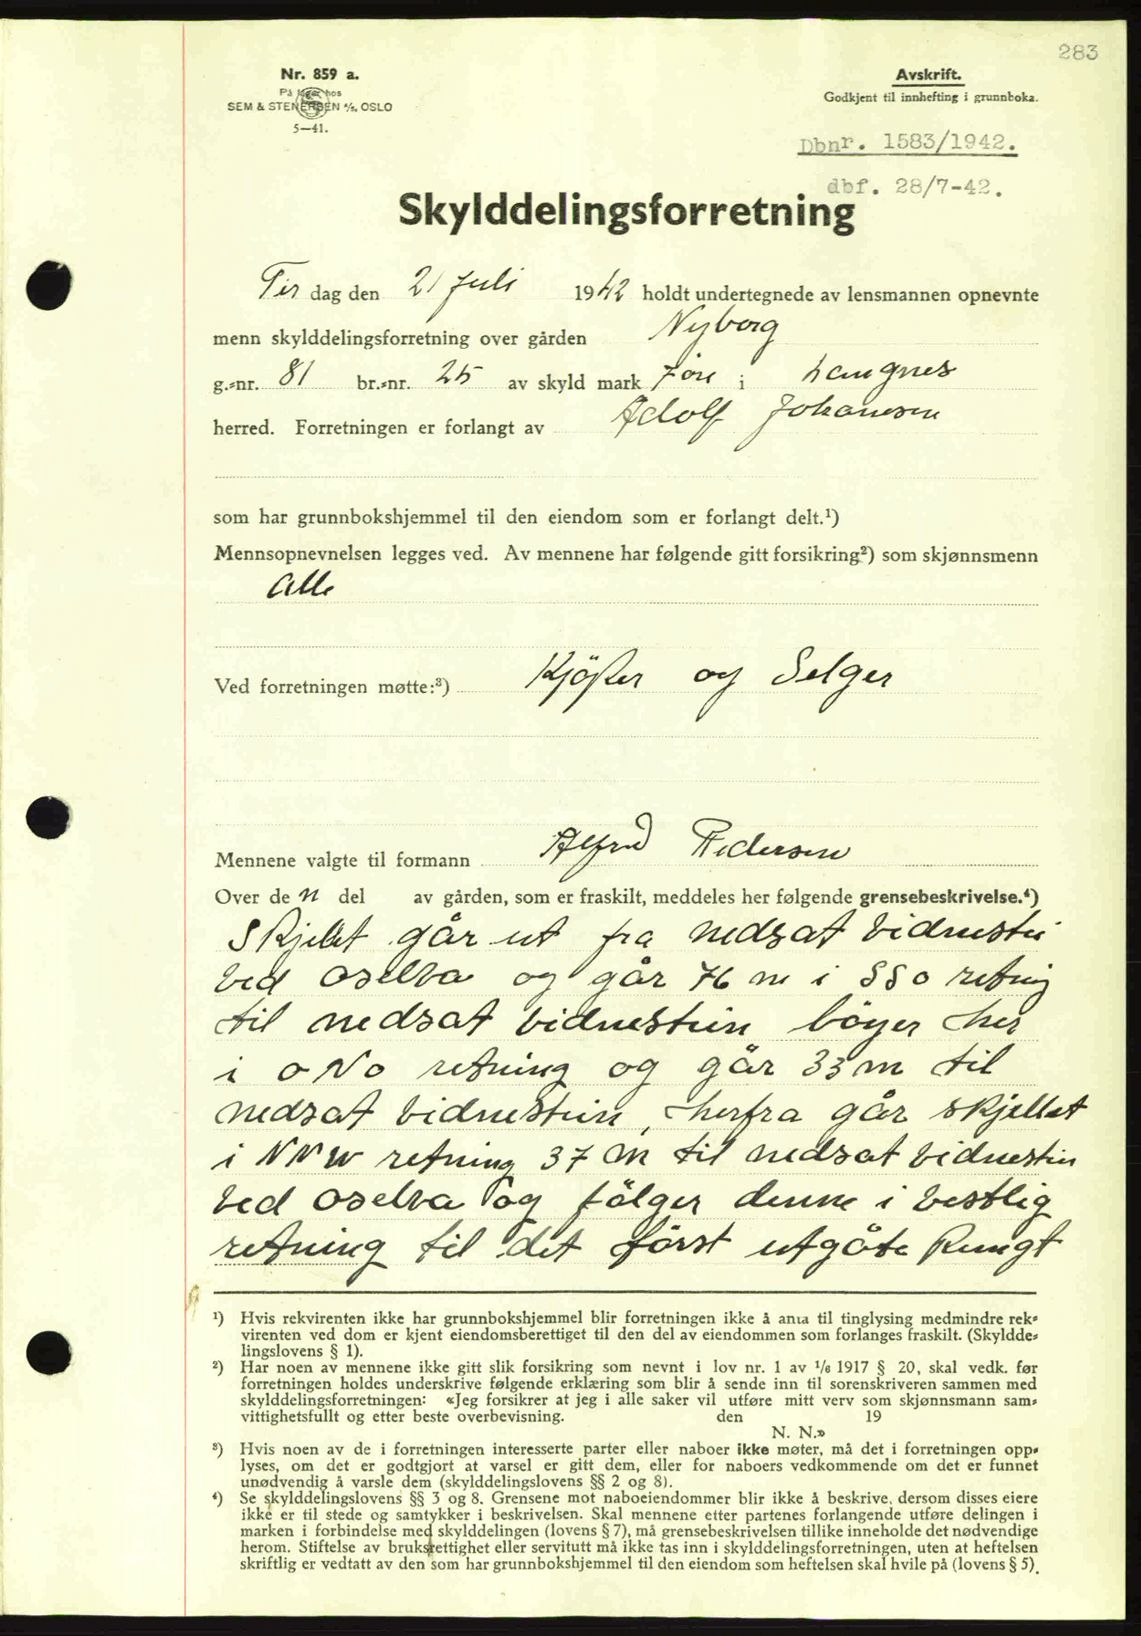 283
Nr. 859 a.
På lager hos
SEM & STENERSEN A/S, OSLO
5—41.
Avskrift.
Godkjent til innhefting i grunnboka.
Dbnr. 1583/1942.
dbf. 28/7-42.
Skylddelingsforretning
Tirsdag den 21 Juli 1942 holdt undertegnede av lensmannen opnevnte
menn skylddelingsforretning over gården Nyborg
g.-nr. 81 br.-nr. 25 av skyld mark 7 öre i Langnes
herred. Forretningen er forlangt av Adolf Johansen
som har grunnbokshjemmel til den eiendom som er forlangt delt.¹)
Mennsopnevnelsen legges ved. Av mennene har følgende gitt forsikring²) som skjønnsmenn
Alle
Ved forretningen møtte:³) Kjöper og Selger
Mennene valgte til formann Alfred Pedersen
Over den del av gården, som er fraskilt, meddeles her følgende grensebeskrivelse.⁴)
Skjellet går ut fra nedsat vidnestei
ved oselva og går 76 m i SSO retnig
til nedsat vidnestein böyer her
i ONO retning og går 33 m til
nedsat vidnestein, herfra går skjellet
i NNW retning 37 m til nedsat vidnestin
ved oselva og fölger denne i vestlig
retning til det först utgåte Pungt
¹) Hvis rekvirenten ikke har grunnbokshjemmel blir forretningen ikke å anta til tinglysing medmindre rek-
virenten ved dom er kjent eiendomsberettiget til den del av eiendommen som forlanges fraskilt. (Skyldde-
lingslovens § 1).
²) Har noen av mennene ikke gitt slik forsikring som nevnt i lov nr. 1 av 1/6 1917 § 20, skal vedk. før
forretningen holdes underskrive følgende erklæring som blir å sende inn til sorenskriveren sammen med
skylddelingsforretningen: «Jeg forsikrer at jeg i alle saker vil utføre mitt verv som skjønnsmann sam-
vittighetsfullt og etter beste overbevisning. den 19
N. N.»
³) Hvis noen av de i forretningen interesserte parter eller naboer ikke møter, må det i forretningen opp-
lyses, om det er godtgjort at varsel er gitt dem, eller for naboers vedkommende om det er funnet
unødvendig å varsle dem (skylddelingslovens §§ 2 og 8).
⁴) Se skylddelingslovens §§ 3 og 8. Grensene mot naboeiendommer blir ikke å beskrive, dersom disses eiere
ikke er til stede og samtykker i beskrivelsen. Skal mennene etter partenes forlangende utføre delingen i
marken i forbindelse med skylddelingen (lovens § 7), må grensebeskrivelsen tillike inneholde det nødvendige
herom. Stiftelse av bruksrettighet eller servitutt må ikke tas inn i skylddelingsforretningen, uten at heftelsen
skriftlig er vedtatt av den som har grunnbokshjemmel til den eiendom som heftelsen skal hvile på (lovens § 5).